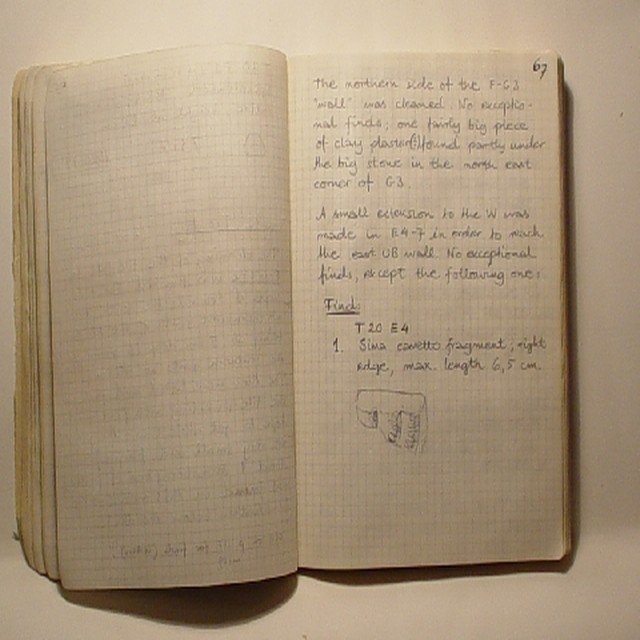 67
The northern side of the F-G3
"wall" was cleaned. No exceptio-
nal finds; one fairly big piece
of clay plaster(?) found partly under
the big stone in the north east
corner of G3.
A small extension to the W was
made in E4-7 in order to reach
the east UB wall. No exceptional
finds, except the following one:
Find:
T20 E4
1. Sima cavetto fragment; right
edge, max. length 6,5 cm.